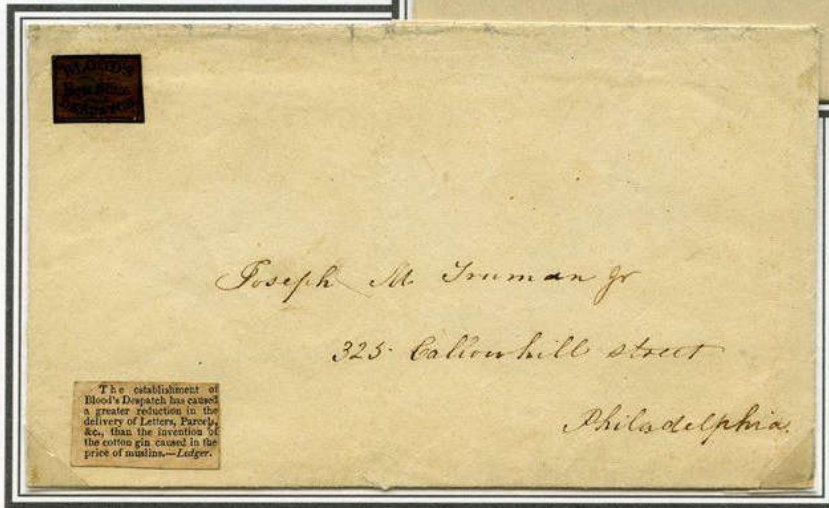 BLOOD'S
DESPATCH
Joseph M Truman Jr
325 Callowhill street
Philadelphia.
The establishment of
Blood's Despatch has caused
a greater reduction in the
delivery of Letters, Parcels,
&c., than the invention of
the cotton gin caused in the
price of muslins.—Ledger.